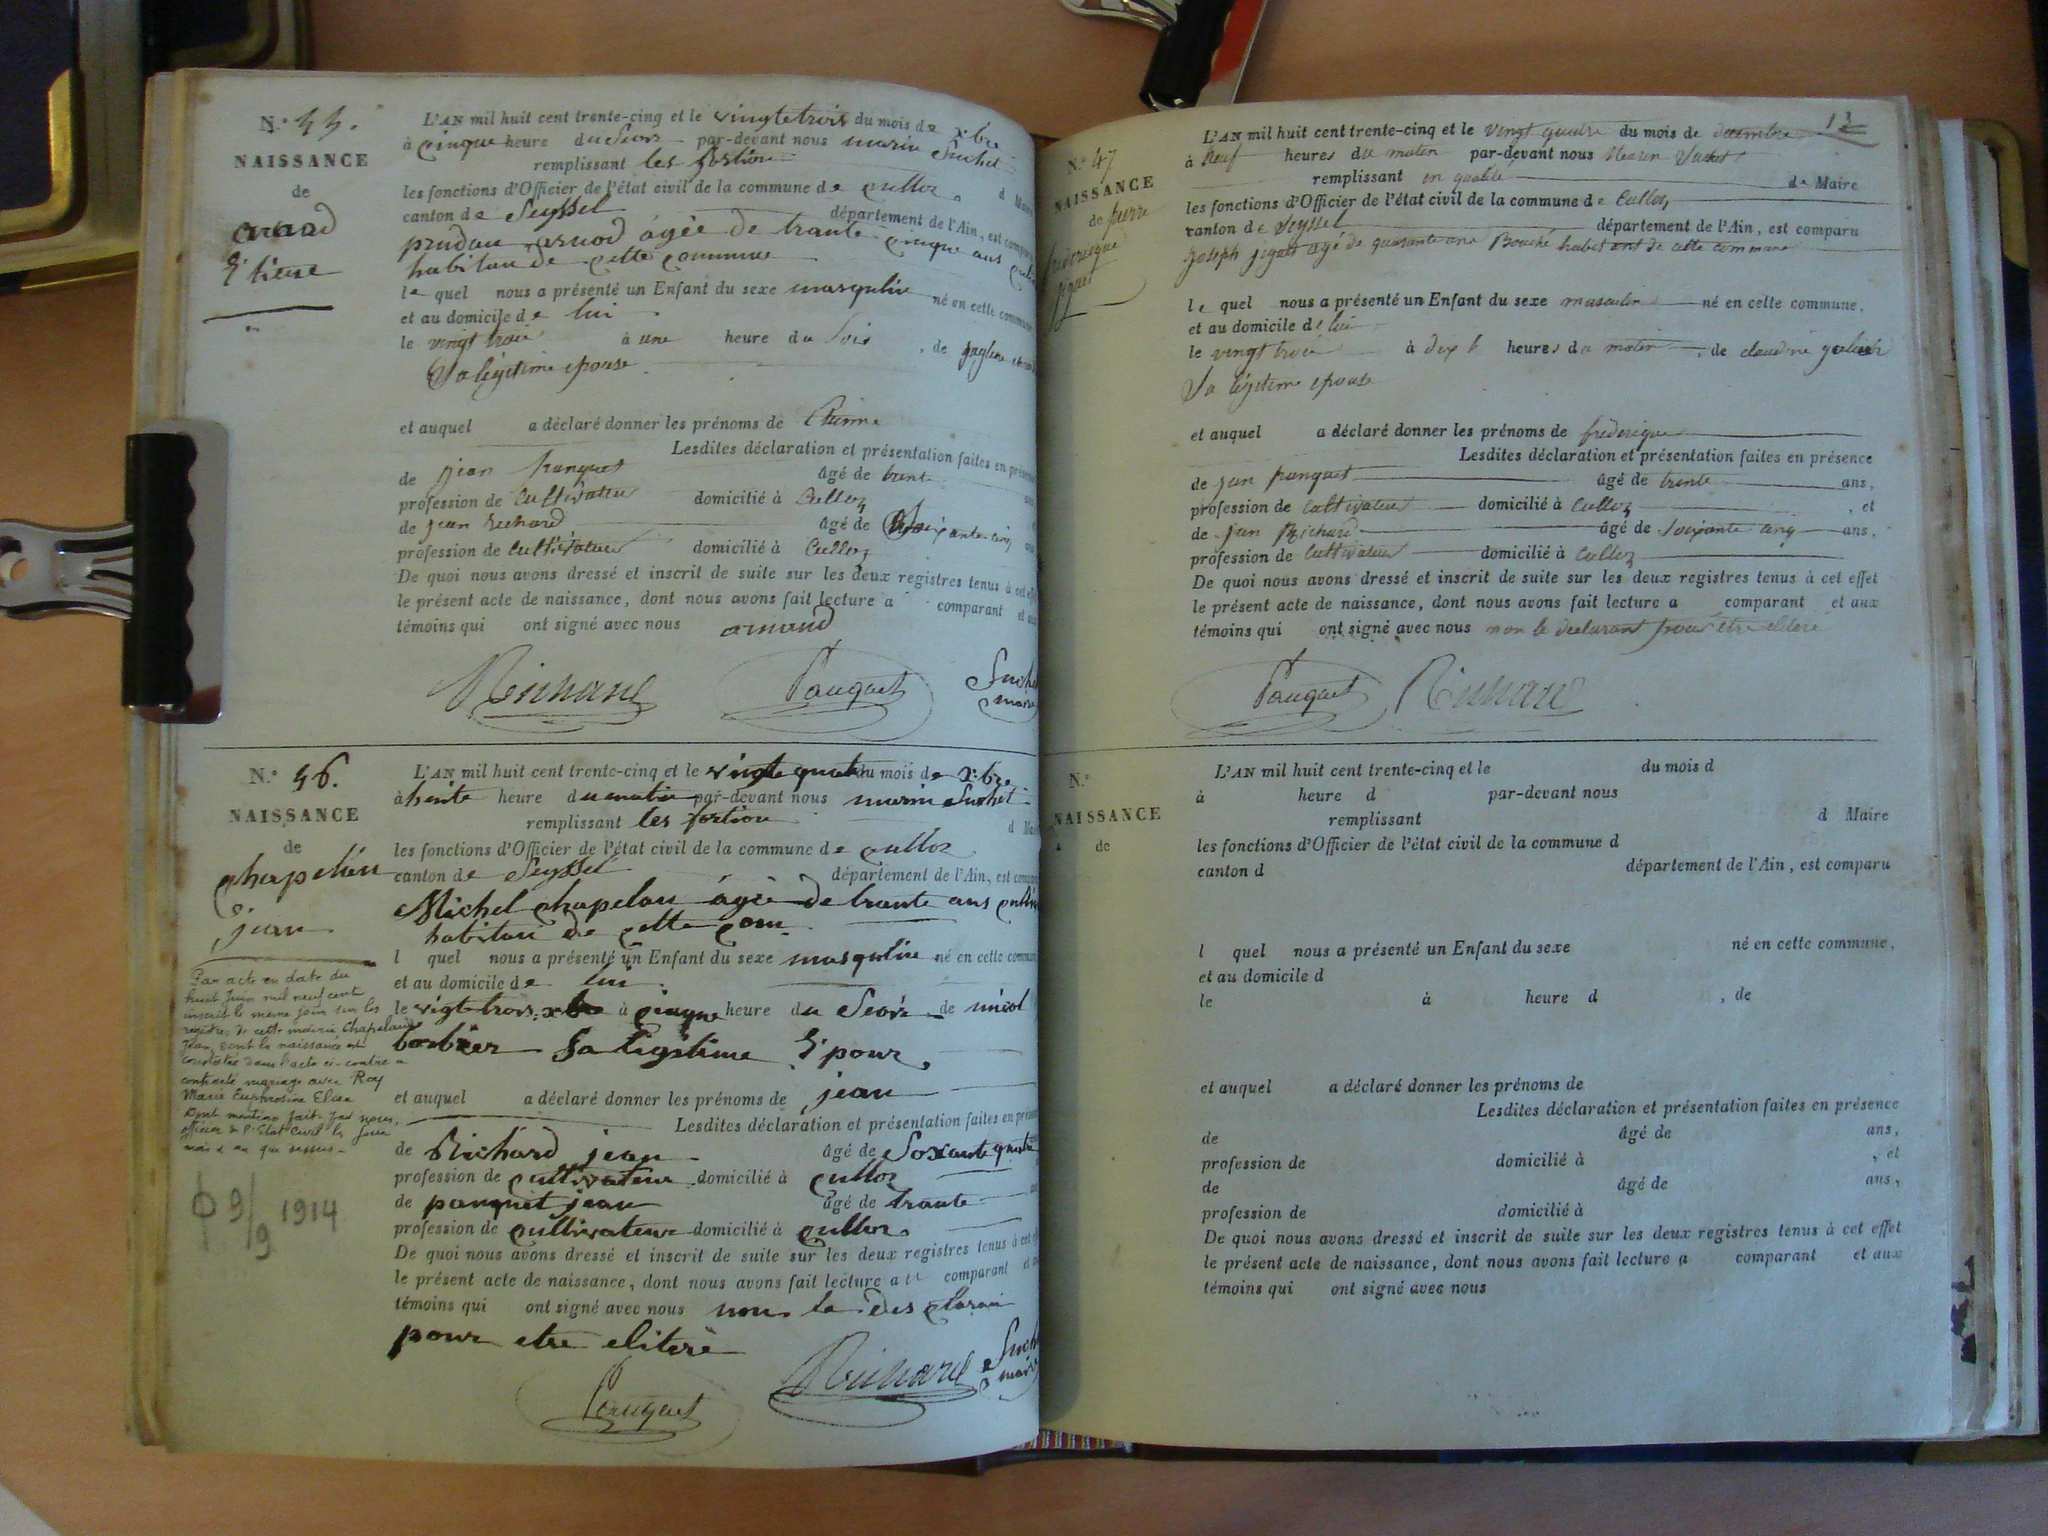 N.° 45.
NAISSANCE
de
arnod
Etiene
L'AN mil huit cent trente-cinq et le vingtetrois du mois de xbre
à cinque heure du Soir par-devant nous marin Suchet
remplissant les fontion d Maire
les fonctions d'Officier de l'état civil de la commune de culloz
canton de Seyssel département de l'Ain, est comparu
arnod âgée de trante cinque ans
habitan de cette commune
le quel nous a présenté un Enfant du sexe masquline né en cette commune
et au domicile de lui
le vingt trois à une heure du Soir, de
Sa légitime epouse
et auquel a déclaré donner les prénoms de Etienne
Lesdites déclaration et présentation faites en présence
de jean panquet âgé de trente
profession de Cultivateur domicilié à Culloz
de jean Richard âgé de Soixante cinq ans
profession de Cultivateur domicilié à Culloz
De quoi nous avons dressé et inscrit de suite sur les deux registres tenus à cet effet
le présent acte de naissance, dont nous avons fait lecture a comparant et aux
témoins qui ont signé avec nous arnaud
Richard Pauquet Suchet
maire
N.° 46.
NAISSANCE
de
chapelan
jean
Par acte en date du
huit Juin mil neuf cent
inscrit le meme jour sur les
registres de cette mairie Chapelan
Jean, dont la naissance est
constatée dans l'acte ci-contre a
contracté mariage avec Roy
Marie Euphrosine Elisa
Dont mention faite par nous,
officier de l'Etat Civil les jour
mois & an que dessus
9/9 1914
L'AN mil huit cent trente-cinq et le vingte quatre du mois de x.bre
à heure du matin par-devant nous marin Suchet
remplissant les fontion d Maire
les fonctions d'Officier de l'état civil de la commune de culloz
canton de Seyssel département de l'Ain, est comparu
Michel chapelan âgée de trante ans
habitan de cette com.
l quel nous a présenté un Enfant du sexe masquline né en cette commune
et au domicile de lui
le vigtetrois xbre à cinque heure du Seoir de nicol
barbier Sa legitime Epour
et auquel a déclaré donner les prénoms de jean
Lesdites déclaration et présentation faites en présence
de Richard jean âgé de Soxante quatre
profession de cultivateur domicilié à culloz
de panquet jean âgé de trante
profession de cultivateur domicilié à culloz
De quoi nous avons dressé et inscrit de suite sur les deux registres tenus à cet effet
le présent acte de naissance, dont nous avons fait lecture a comparant et aux
témoins qui ont signé avec nous non le des claran
pour etre eliterè
Pauquet Richard Suchet
maire
13
N.° 47
NAISSANCE
de pierre
frederique
jiguet
L'AN mil huit cent trente-cinq et le vingt quatre du mois de decembre
à Neuf heures du matin par-devant nous Marin Suchet
remplissant en qualité de Maire
les fonctions d'Officier de l'état civil de la commune de Culloz
canton de Seyssel département de l'Ain, est comparu
Joseph jiguet agé de quarante ans Bouché habitant de cette commune
le quel nous a présenté un Enfant du sexe masculin né en cette commune,
et au domicile de lui
le vingt trois à dix heures du matin, de claudine
Sa légitime epouse
et auquel a déclaré donner les prénoms de frederique
Lesdites déclaration et présentation faites en présence
de jean panquet âgé de trente ans,
profession de cultivateur domicilié à Culloz, et
de jean Richard âgé de Soixante cinq ans,
profession de Cultivateur domicilié à Culloz
De quoi nous avons dressé et inscrit de suite sur les deux registres tenus à cet effet
le présent acte de naissance, dont nous avons fait lecture a comparant et aux
témoins qui ont signé avec nous non le declarant pour etre elitere
Pauquet Richard
N.°
NAISSANCE
de
L'AN mil huit cent trente-cinq et le du mois d
à heure d par-devant nous
remplissant d Maire
les fonctions d'Officier de l'état civil de la commune d
canton d département de l'Ain, est comparu
l quel nous a présenté un Enfant du sexe né en cette commune,
et au domicile d
le à heure d , de
et auquel a déclaré donner les prénoms de
Lesdites déclaration et présentation faites en présence
de âgé de ans,
profession de domicilié à , et
de âgé de ans,
profession de domicilié à
De quoi nous avons dressé et inscrit de suite sur les deux registres tenus à cet effet
le présent acte de naissance, dont nous avons fait lecture a comparant et aux
témoins qui ont signé avec nous